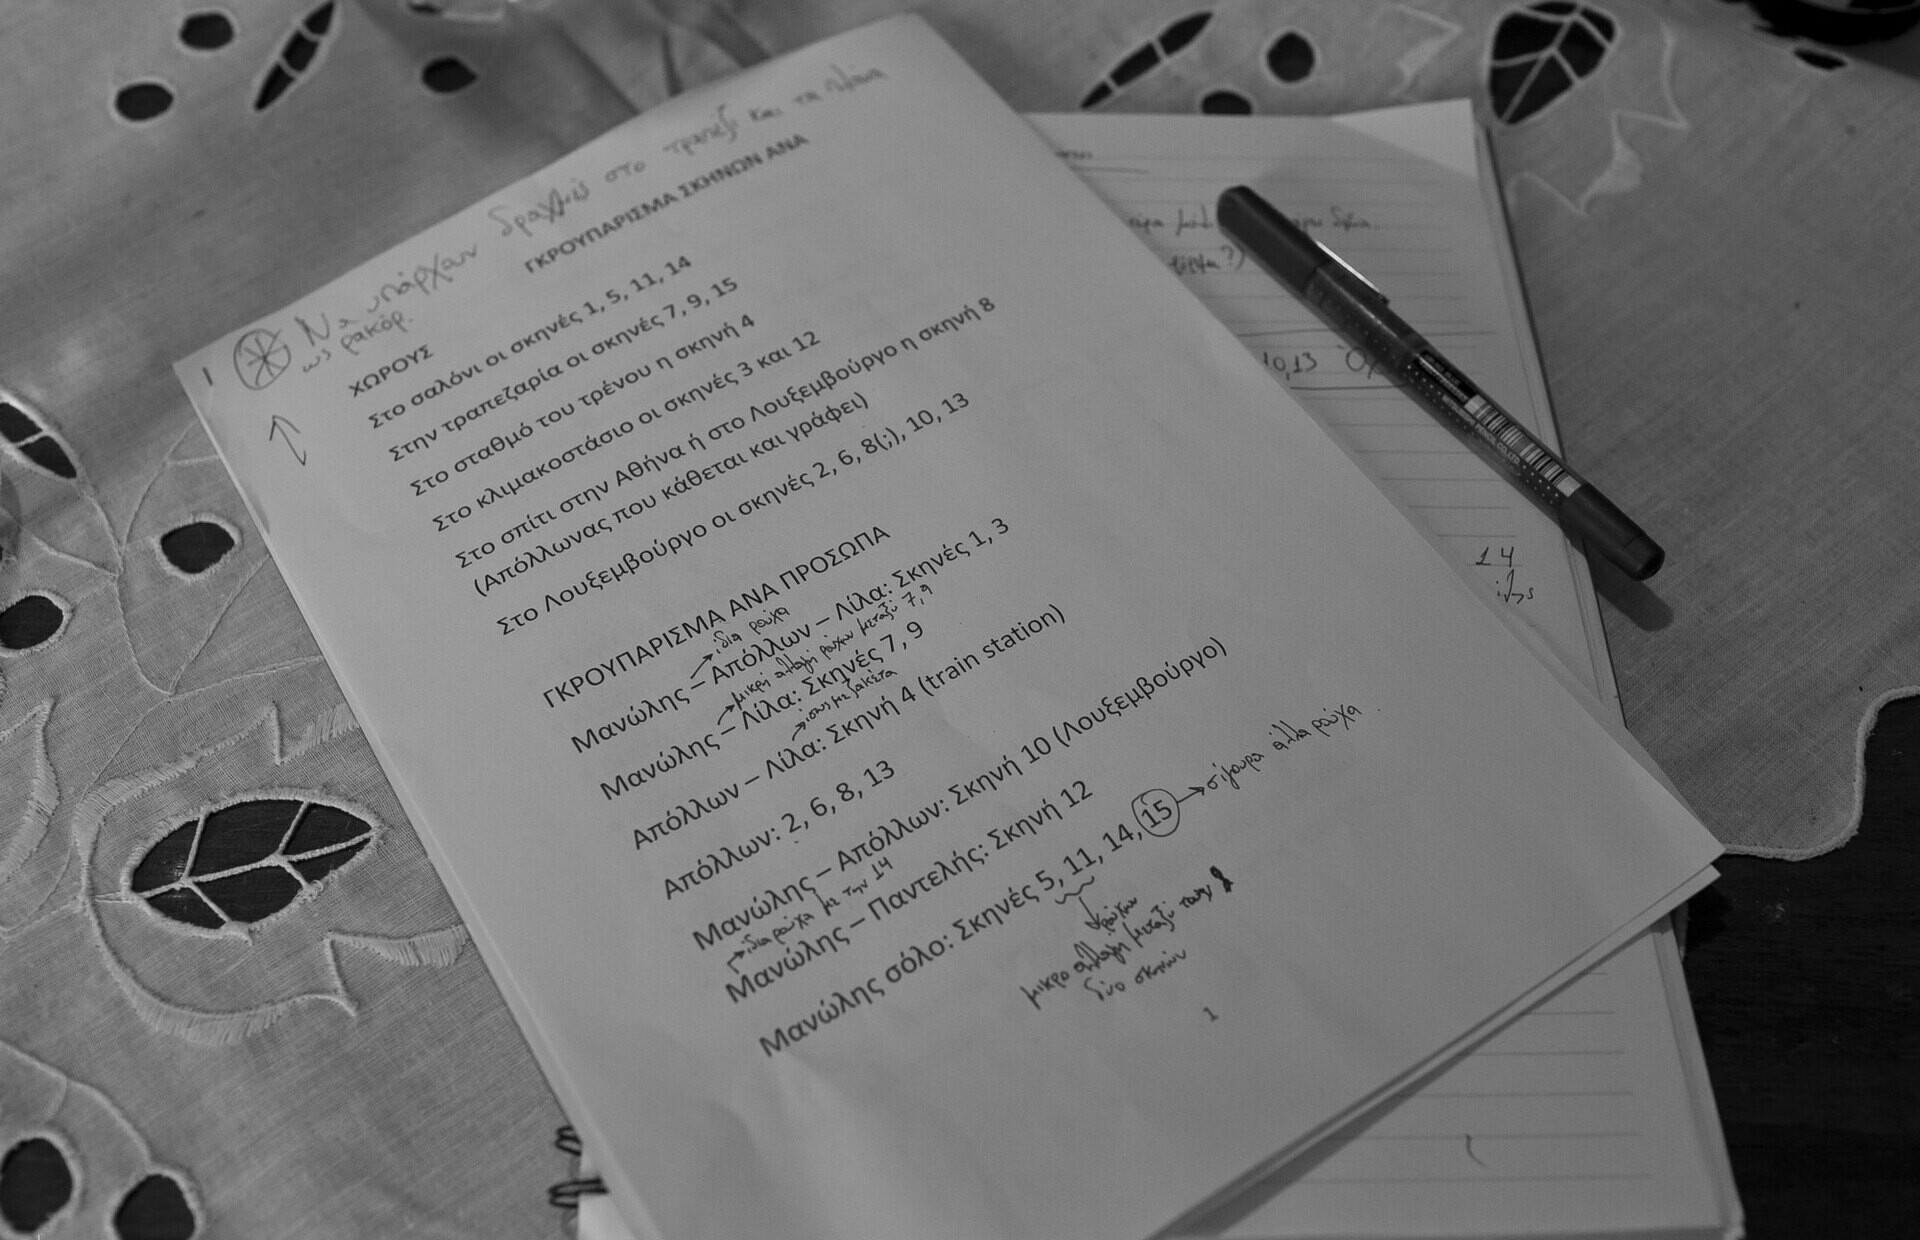 Να υπάρχουν δραχμές στο τραπέζι και τα πλάνα
ως ρακόρ.
ΓΚΡΟΥΠΑΡΙΣΜΑ ΣΚΗΝΩΝ ΑΝΑ
ΧΩΡΟΥΣ
Στο σαλόνι οι σκηνές 1, 5, 11, 14
Στην τραπεζαρία οι σκηνές 7, 9, 15
Στο σταθμό του τρένου η σκηνή 4
Στο κλιμακοστάσιο οι σκηνές 3 και 12
Στο σπίτι στην Αθήνα ή στο Λουξεμβούργο η σκηνή 8
(Απόλλωνας που κάθεται και γράφει)
Στο Λουξεμβούργο οι σκηνές 2, 6, 8(;), 10, 13
ΓΚΡΟΥΠΑΡΙΣΜΑ ΑΝΑ ΠΡΟΣΩΠΑ
ίδια ρούχα
Μανώλης – Απόλλων – Λίλα: Σκηνές 1, 3
μικρή αλλαγή ρούχων μεταξύ 7, 9
Μανώλης – Λίλα: Σκηνές 7, 9
ίσως με ζακέτα
Απόλλων – Λίλα: Σκηνή 4 (train station)
Απόλλων: 2, 6, 8, 13
Μανώλης – Απόλλων: Σκηνή 10 (Λουξεμβούργο)
ίδια ρούχα με την 14
Μανώλης – Παντελής: Σκηνή 12
Μανώλης σόλο: Σκηνές 5, 11, 14, 15 → σίγουρα άλλα ρούχα.
ρούχων
μικρο αλλαγή μεταξύ τους
δύο σκηνών
1
10,13
14